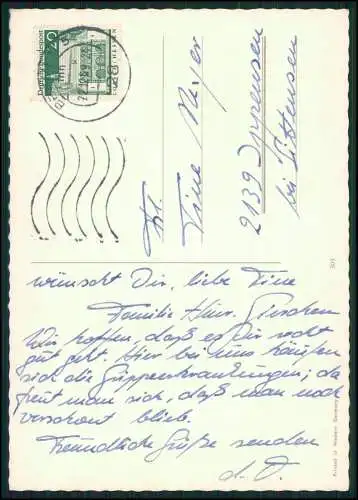 Deutsche Bundespost
20
Frl.
Tine Meyer
2139 Ippensen
bei Sittensen
wünscht Dir, liebe Tine
Familie Hinr.
Wir hoffen, daß es Dir recht
gut geht. Hier bei uns häufen
sich die Grippenkrankungen; da
freut man sich, daß man noch
verschont blieb.
Freundliche Grüße senden
d. O.
Printed in Western Germany